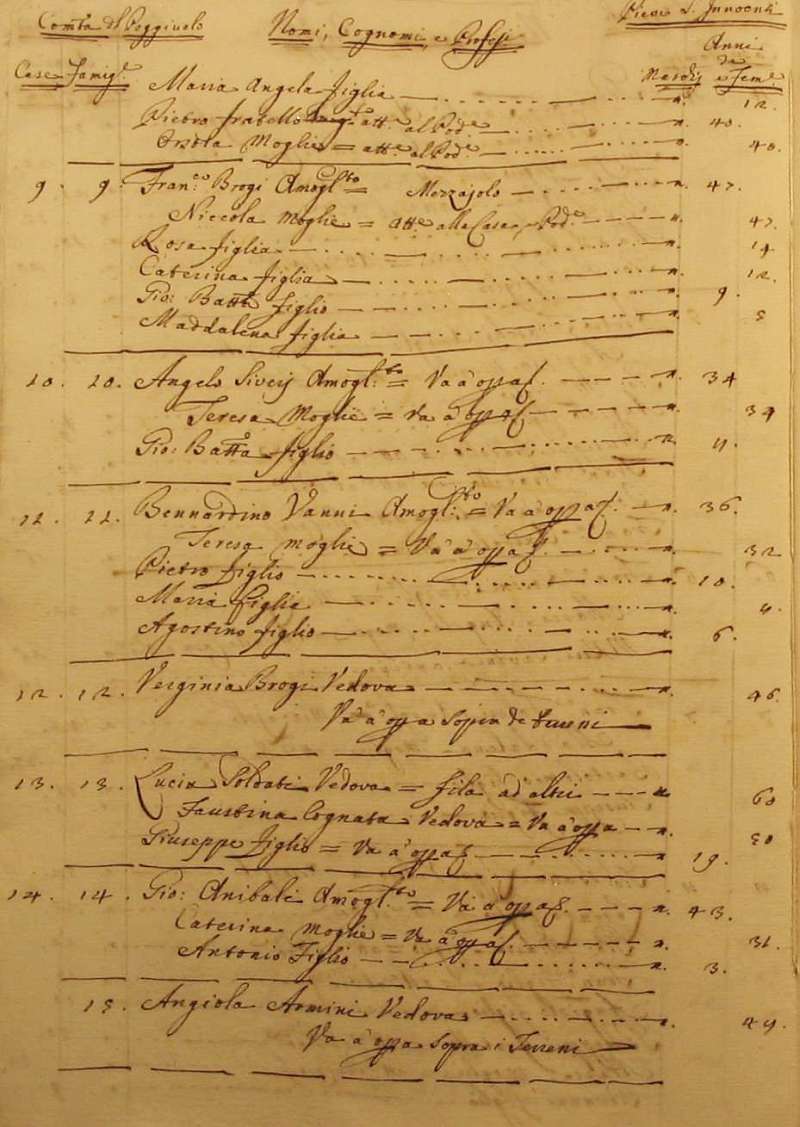 Comtà di Poggiuolo Nomi, Cognomi, e Profess. Pieve S. Innocenti
Case, Famig.e Anni de Maschi e Fem.e
Maria Angela figlia n. 12.
Pietro fratello att.e al Pod.e n. 40.
Orsola Moglie = att.e al Pod.e n. 40.
9. 9. Fran.co Brogi Amogl.to = Mezzajolo n. 47.
Niccola Moglie = att.e alla Casa, e Pod.e n. 47.
Rosa figlia n. 14
Caterina figlia n. 12.
Gio: Batt.a figlio n. 9.
Maddalena figlia n. 5
10. 10. Angelo Amogl.to = Va à opra n. 34
Teresa Moglie = Va à opra n. 34
Gio: Batt.a figlio n. 4.
11. 11. Bennardino Vanni Amogl.to = Va à opra n. 36.
Teresa Moglie = Va à opra n. 32
Pietro figlio n. 10.
Maria figlia n.
Agostino figlio n. 6.
12. 12. Verginia Brogi Vedova n. 46
Va à opra sopra de terreni
13. 13. Lucia Soldati Vedova = fila ad altri n. 60
Faustina Cognata Vedova = Va à opra n. 50
Giuseppe figlio = Va à opra n. 19.
14. 14. Gio: Anibali Amogl.to = Va à opra n. 43.
Caterina Moglie = Va à opra n. 31.
Antonio Figlio n. 3.
15. Angiola Armini Vedova n. 49.
Va à opra sopra i Terreni